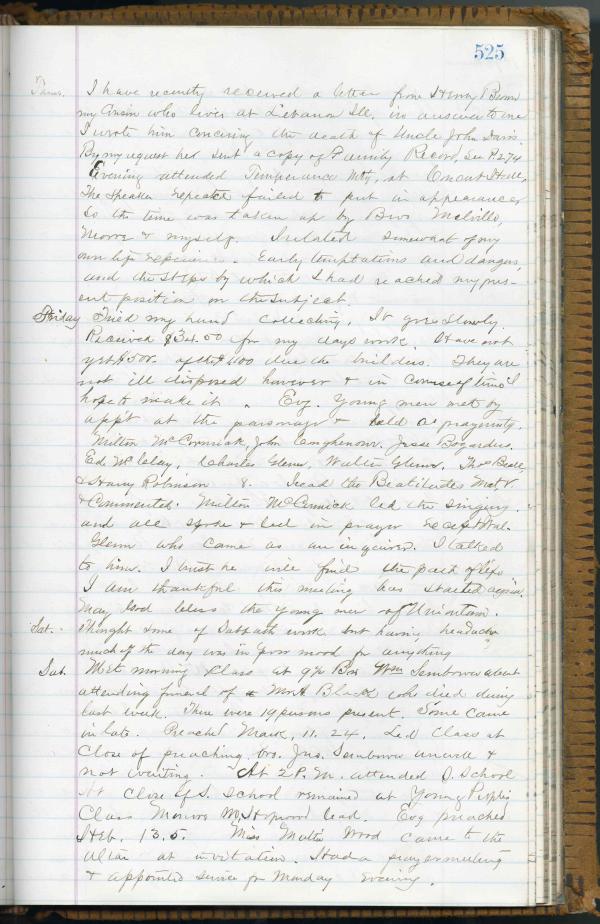 525
Thurs. I have recently received a letter from Henry Brown
my Cousin who lives at Lebanon Ill. in answer to one
I wrote him concering the death of Uncle John Davis
By my request he sent a copy of Family Record, See P 274
Evening attended Temperance Mtg, at Concert Hall,
The Speaker expected failed to put in appearance
So the time was taken up by Bros Melville,
Moore & myself. I related somewhat of my
own life experience. Early temptations and dangers,
and the steps by which I had reached my pres-
ent position on the subject.
Friday Tried my hand collecting, It goes slowly.
Received $34.00 for my days work. Have not
yet $500. of the due the builders. They are
not ill disposed however & in course of time I
hope to make it. Evg. Young men met by
appt at the parsonage & held a praymtg.
Milton McCormick, John Jesse Bogardus.
Ed. McClay, Charles Glenn, Walter Glenn, Thos Beall,
& Harry Robinson 8. I read the Beatitudes Mat. V.
& Commented. Milton McCormick led the singing.
and all spoke & led in prayer except Wal.
Glenn who came as an inquirer. I talked
to him. I trust he will find the path of life
I am thankful this meeting has started again.
May God bless the young men of Uniontown.
Sat. Thought some of Sabbath work but having headache
much of the day was in poor mood for anything
Sab. Met morning Class at 9½ Bro Wm Sembower about
attending funeral of Mr A Black who died during
last week. There were 19 persons present. Some came
in late. Preached Mark, 11. 24. Led Class at
Close of preaching, Bro. Jno. Sembower unwell &
not waiting. At 2 P. M. attended S. School
At close of S. School remained at Young Peoples
Class Monroe M. Hopwood lead. Evg preached
Heb. 13.5. Miss Mattie Wood came to the
altar at invitation. Had a prayermeeting
& appointed service for Monday evening.